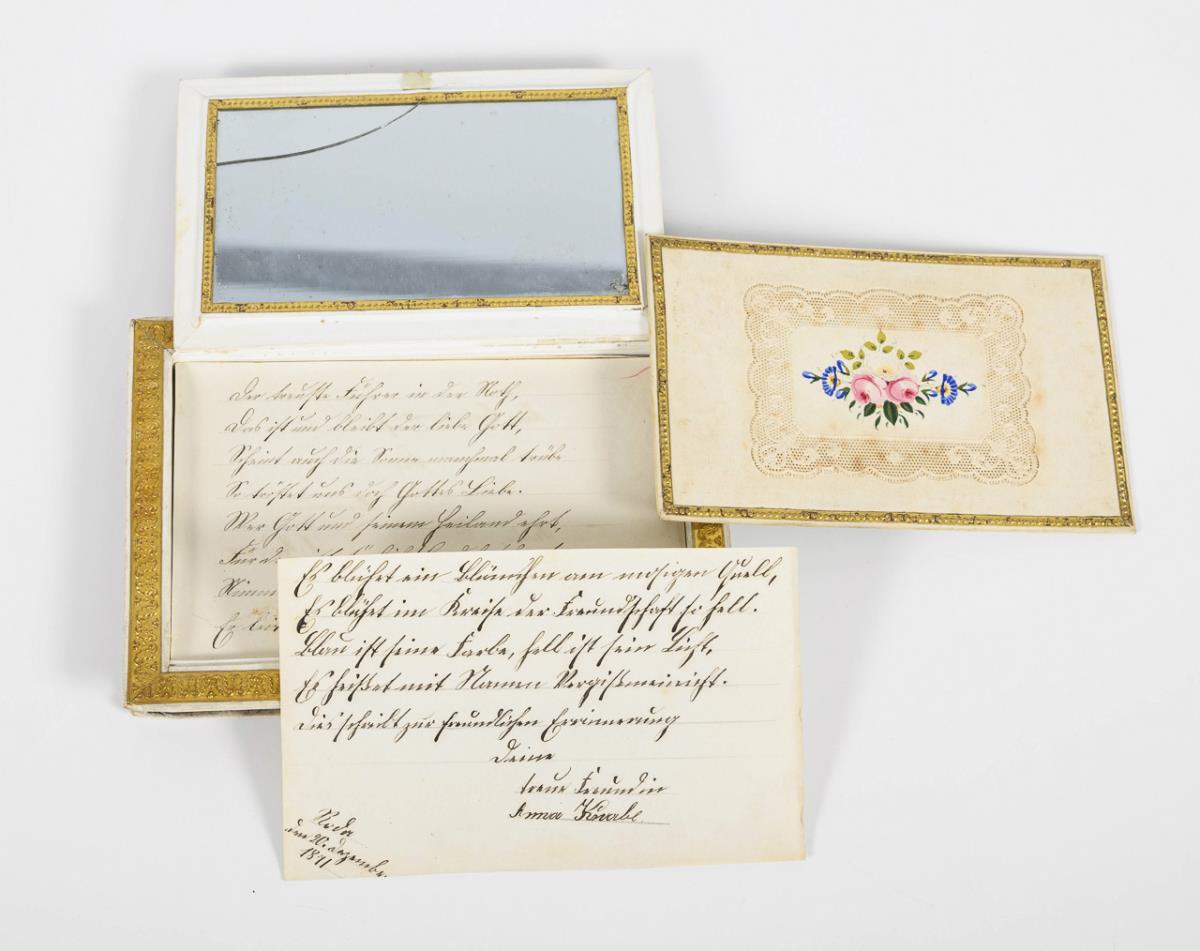 Der treuste Führer in der Noth,
Das ist und bleibt der liebe Gott,
Scheint auch die Sonne manchmal trübe
So tröstet uns doch Gottes Liebe.
Wer Gott und seinem Heiland ehrt,
Für
Es blühet ein Blümchen am mosigen Quell,
Es blühet im Kreise der Freundschaft so hell.
Blau ist seine Farbe, hell ist sein Licht,
Es heißet mit Namen Vergißmeinicht.
Dies schreibt zur freundlichen Errinnerung
Deine
treue Freundin
Anna Knabe
Roda
den 20. Dezember
1871